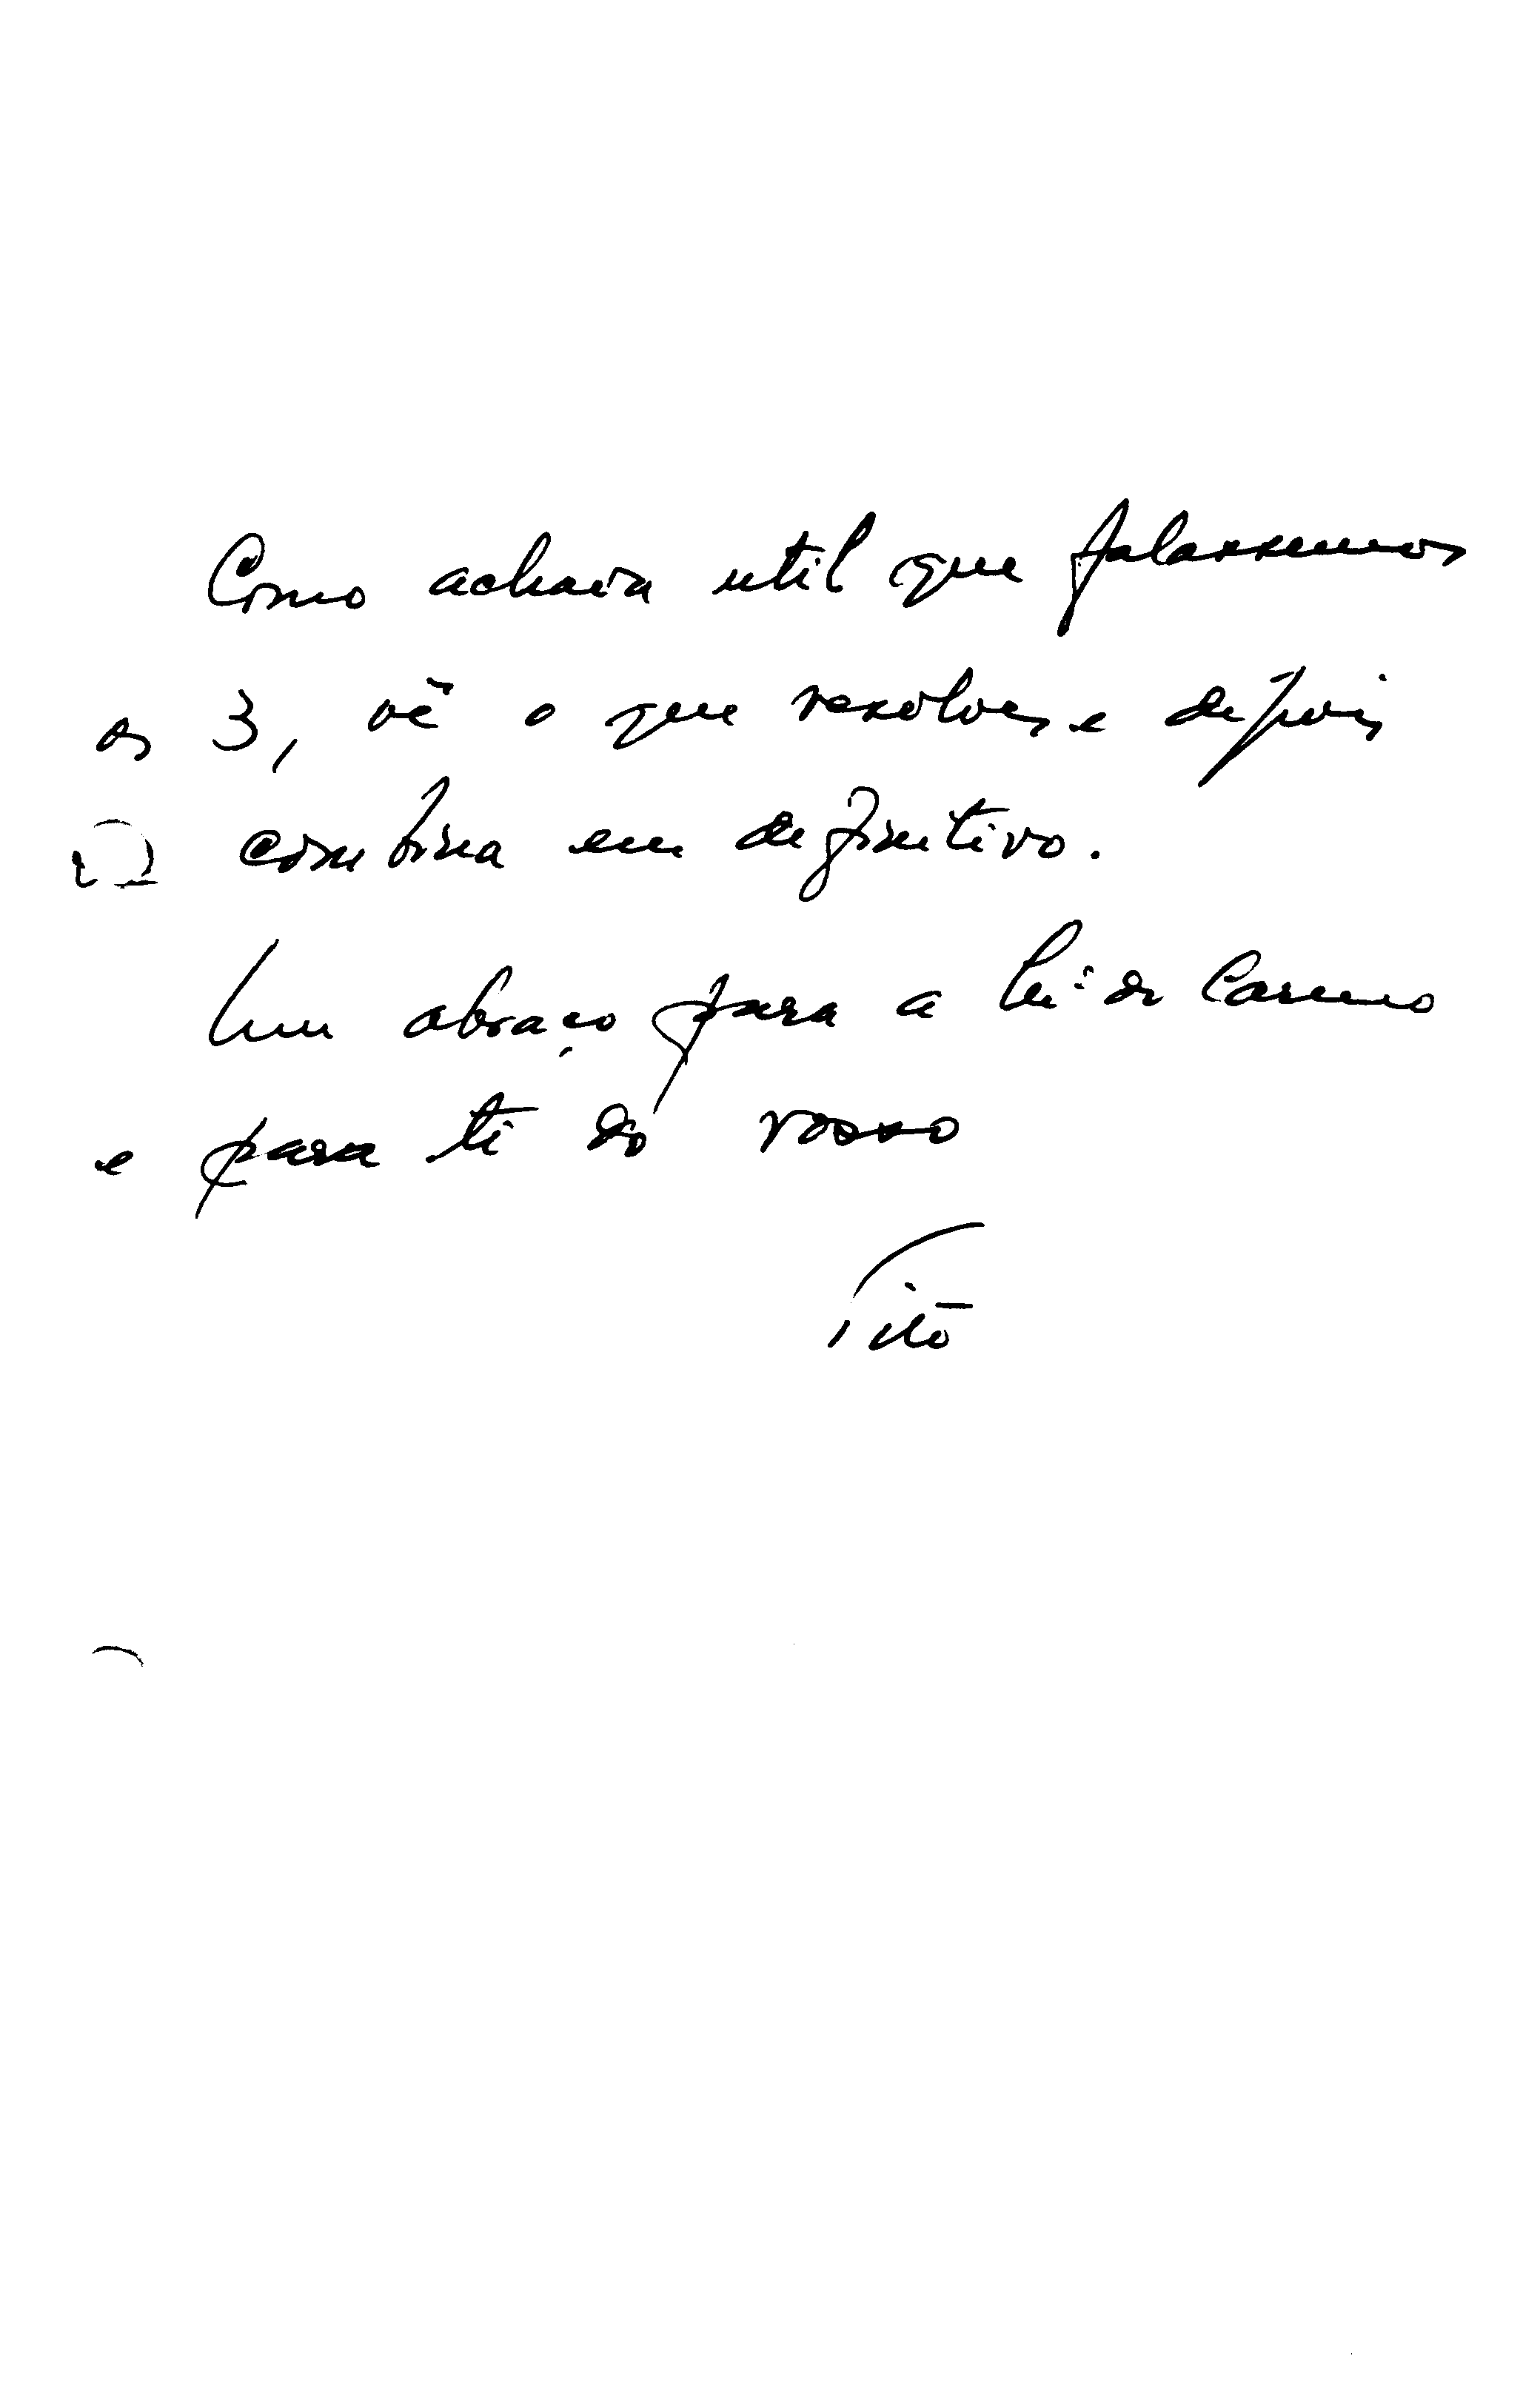 Como achava util que falassemos
os 3, vê o que resolves e depois
combina em definitivo.
Um abraço para a M.ª do Carmo
e para ti do vosso
Titó